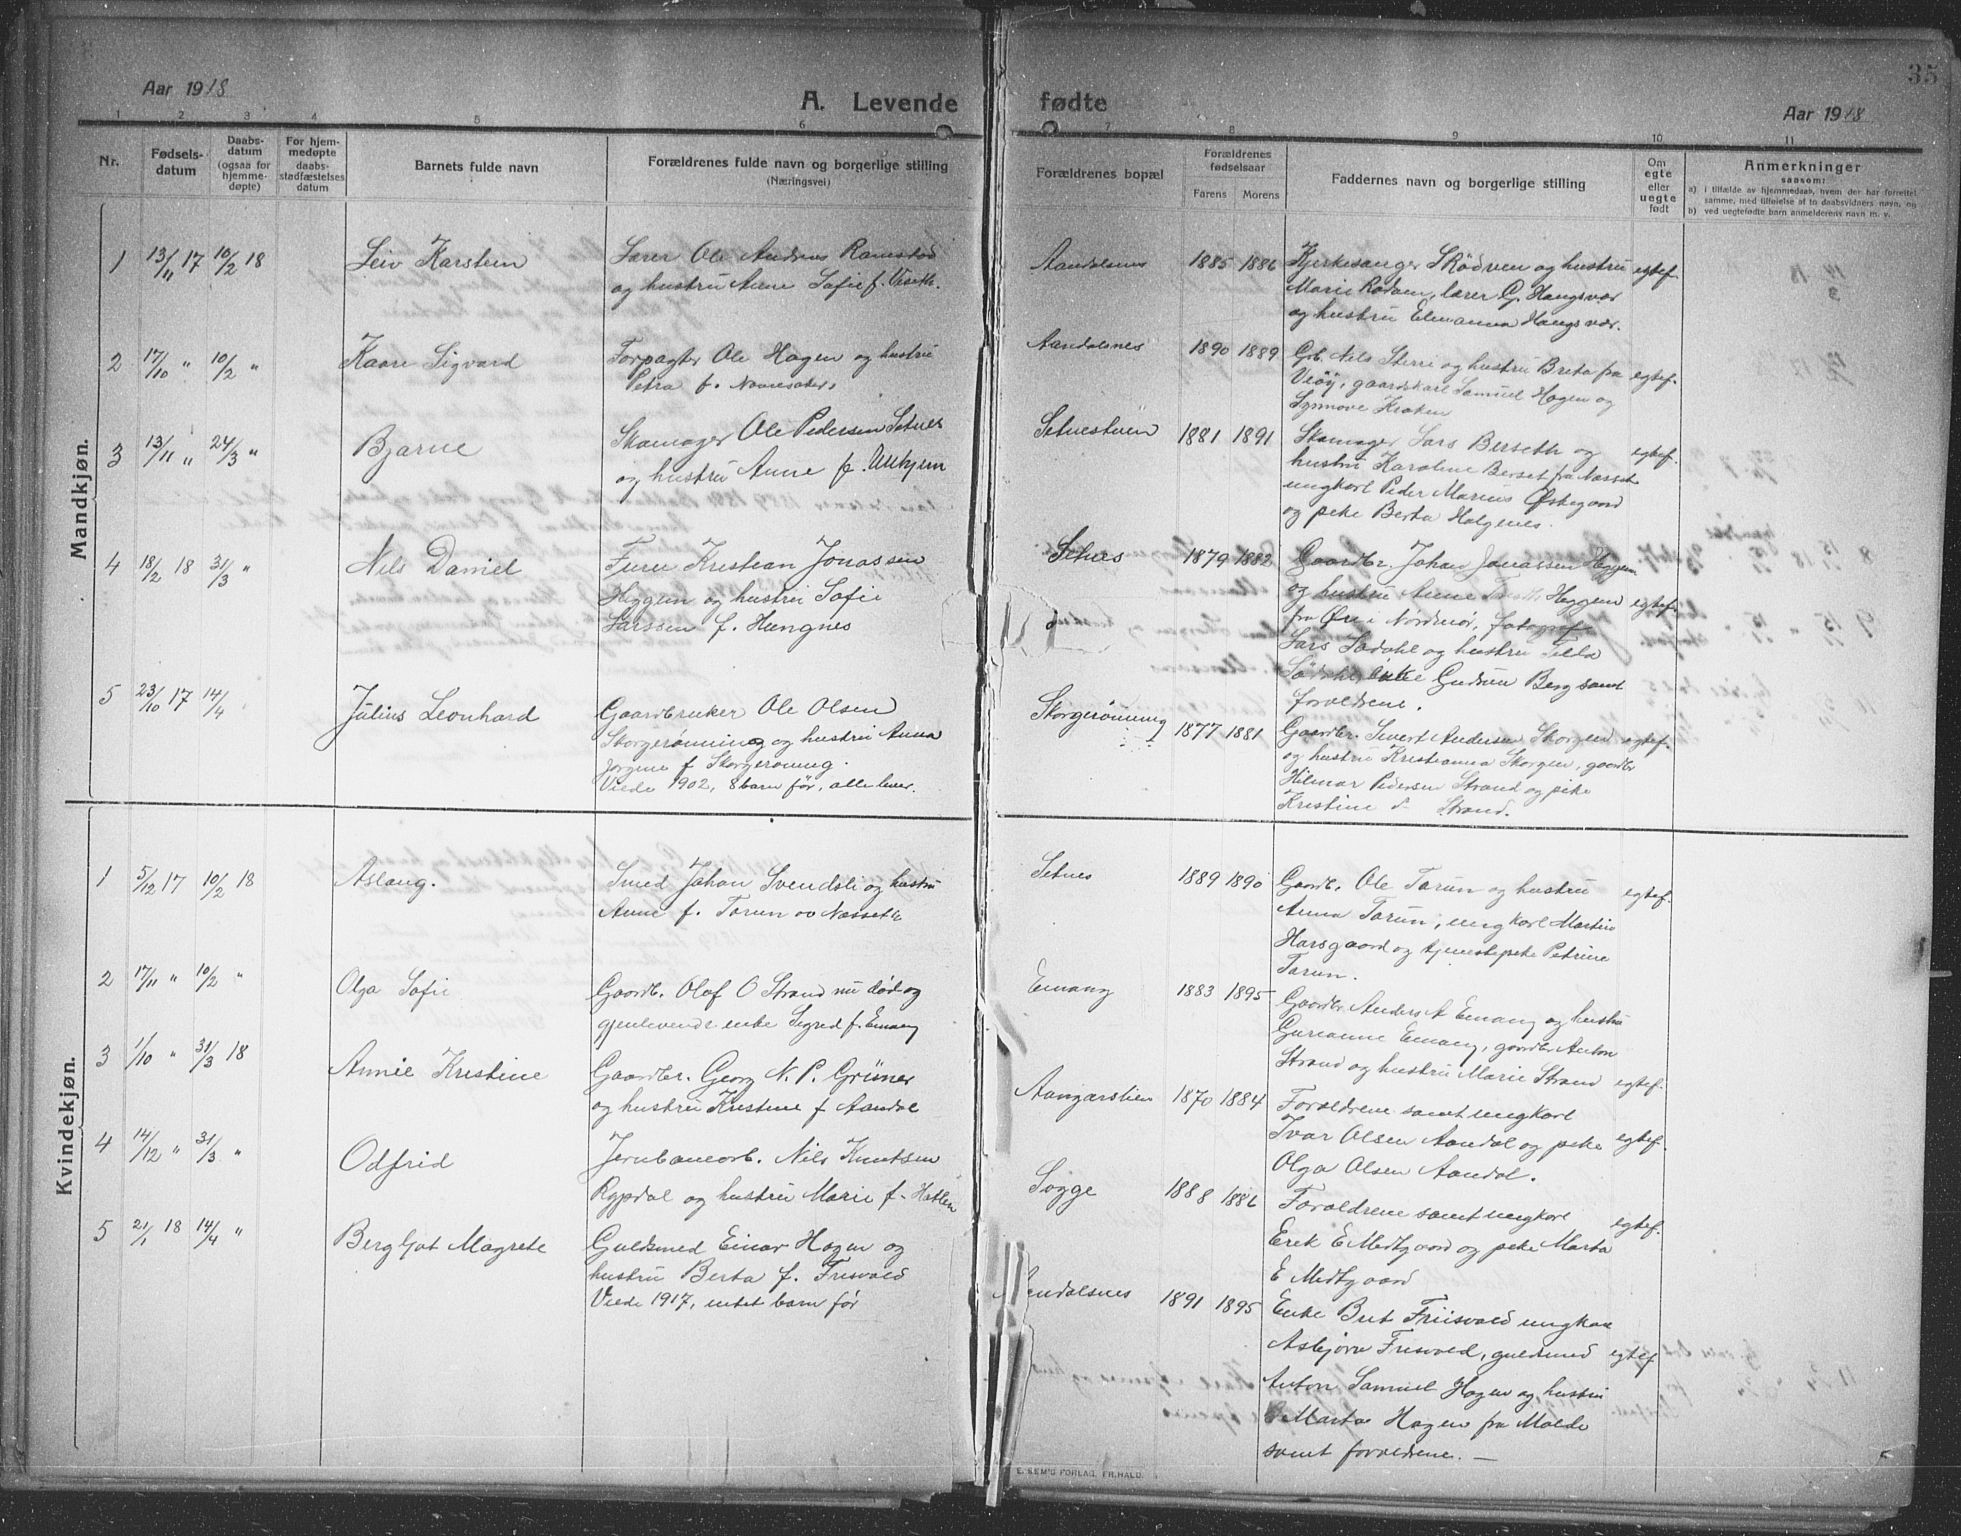 35
Aar 1918
A. Levende fødte
Aar 1918
1 2 3 4 5 6 7 8 9 10 11
Nr.
Fødsels-
datum
Daabs-
datum
(ogsaa for
hjemme-
døpte)
For hjem-
medøpte
daabs-
stadfæstelses
datum
Barnets fulde navn
Forældrenes fulde navn og borgerlige stilling
(Næringsvei)
Forældrenes bopæl
Forældrenes
fødselsaar
Farens Morens
Faddernes navn og borgerlige stilling
Om
egte
eller
uegte
født
Anmerkninger
saasom:
a) i tilfælde av hjemmedaab, hvem der har forrettet
samme, med tilføielse af to daabsvidners navn, og
b) ved uegtefødte barn anmelderens navn m. v.
Mandkjøn.
1 13/11 17 10/2 18 Leiv Karstein
Lærer Ole Andreas Ramstad
og hustru Anne Sofie f. Viseth.
Aandalsnes 1885 1886
Kjerkesanger S Rödven og hustru egtef.
Marie Rödven, lærer G. Haugsvær
og hustru Elen anna Haugsvær.
2 17/10 " 10/2 " Kaare Sigvard
Forpagter Ole Hagen og hustru
Petra f.
Aandalsnes 1890 1889
Grb. Nils Sterri og hustru Brita fra egtef.
Veöy, gaardskarl Samuel Hagen og
Synnove Kroken
3 13/11 " 24/3 " Bjarne
Skomager Ole Pedersen Setnes
og hustru Anne f.
Setnesteven 1881 1891
Skomager Lars Berseth og egtef.
hustru Karoline Berset fra Næsset
ungkarl Peder Marius Østegaard
og pike Berta Holgenes.
4 18/2 18 31/3 " Nils Daniel
Furer Kristian Jonassen
Heggem og hustru Sofie
Larssen f. Hængnes
Setnes 1879 1882
Gaardbr. Johan Jonassen Heggem
og hustru Anne Heggem egtef.
fra Øre i Nordmør, fotograf
Lars Sødahl og hustru Tilla
Sødahl, Gudrun Berg samt
forældrene.
5 23/10 17 14/4 Julius Leonhard
Gaardbruker Ole Olsen
Skorgerønning og hustru Anna
Jørgine f Skorgerønning.
Viede 1902, 8 barn før, alle lever.
Skorgerønning 1877 1881
Gaardbr. Sivert Andersen Skorgen egtef.
og hustru Kristianna Skorgen, gaardbr
Hilmar Pedersen Strand og pike
Kristine d Strand.
Kvindekjøn.
1 5/12 17 10/2 18 Aslaug.
Smed Johan Svendsli og hustru
Anne f. Torun av Næsseth
Setnes 1889 1890
Gaardb. Ole Torun og hustru egtef.
Anna Torun, ungkarl Martin
Harsgaard og tjenestepike Petrine
Torun.
2 17/11 " 10/2 " Olga Sofie
Gaardb. Olaf O Strand nu død og
gjenlevende enke Sigrid f. Emang
Emang 1883 1895
Gaardbr Anders A Emang og hustru
Gurianne Emang, gaardbr Anton
Strand og hustru Marie Strand egtef.
3 1/10 " 31/3 18 Annie Kristine
Gaardbr. Georg N. P. Grüner
og hustru Kristine f Aandal
Aangarslien 1870 1884
Forældrene samt ungkarl
Ivar Olsen Aandal og pike egtef.
Olga Olsen Aandal.
4 14/12 " 31/3 " Odfrid
Jernbanearb. Nils Knutsen
Rypdal og hustru Marie f. Hatlen
Sogge 1888 1886
Forældrene samt ungkarl egtef.
Erik E Midtgaard og pike Marta
E Midtgaard
5 21/1 18 14/4 " Bergljot Magrete
Guldsmed Einar Hagen og
hustru Berta f. Frisvold
Viede 1917, intet barn før
Aandalsnes 1891 1895
Enke Brit Friisvold ungkar
Asbjørn Frisvold, guldsmed egtef
Anton Samuel Hagen og hustru
Marta Hagen fra Molde
samt forældrene.
E. SEM'S FORLAG, FR.HALD.